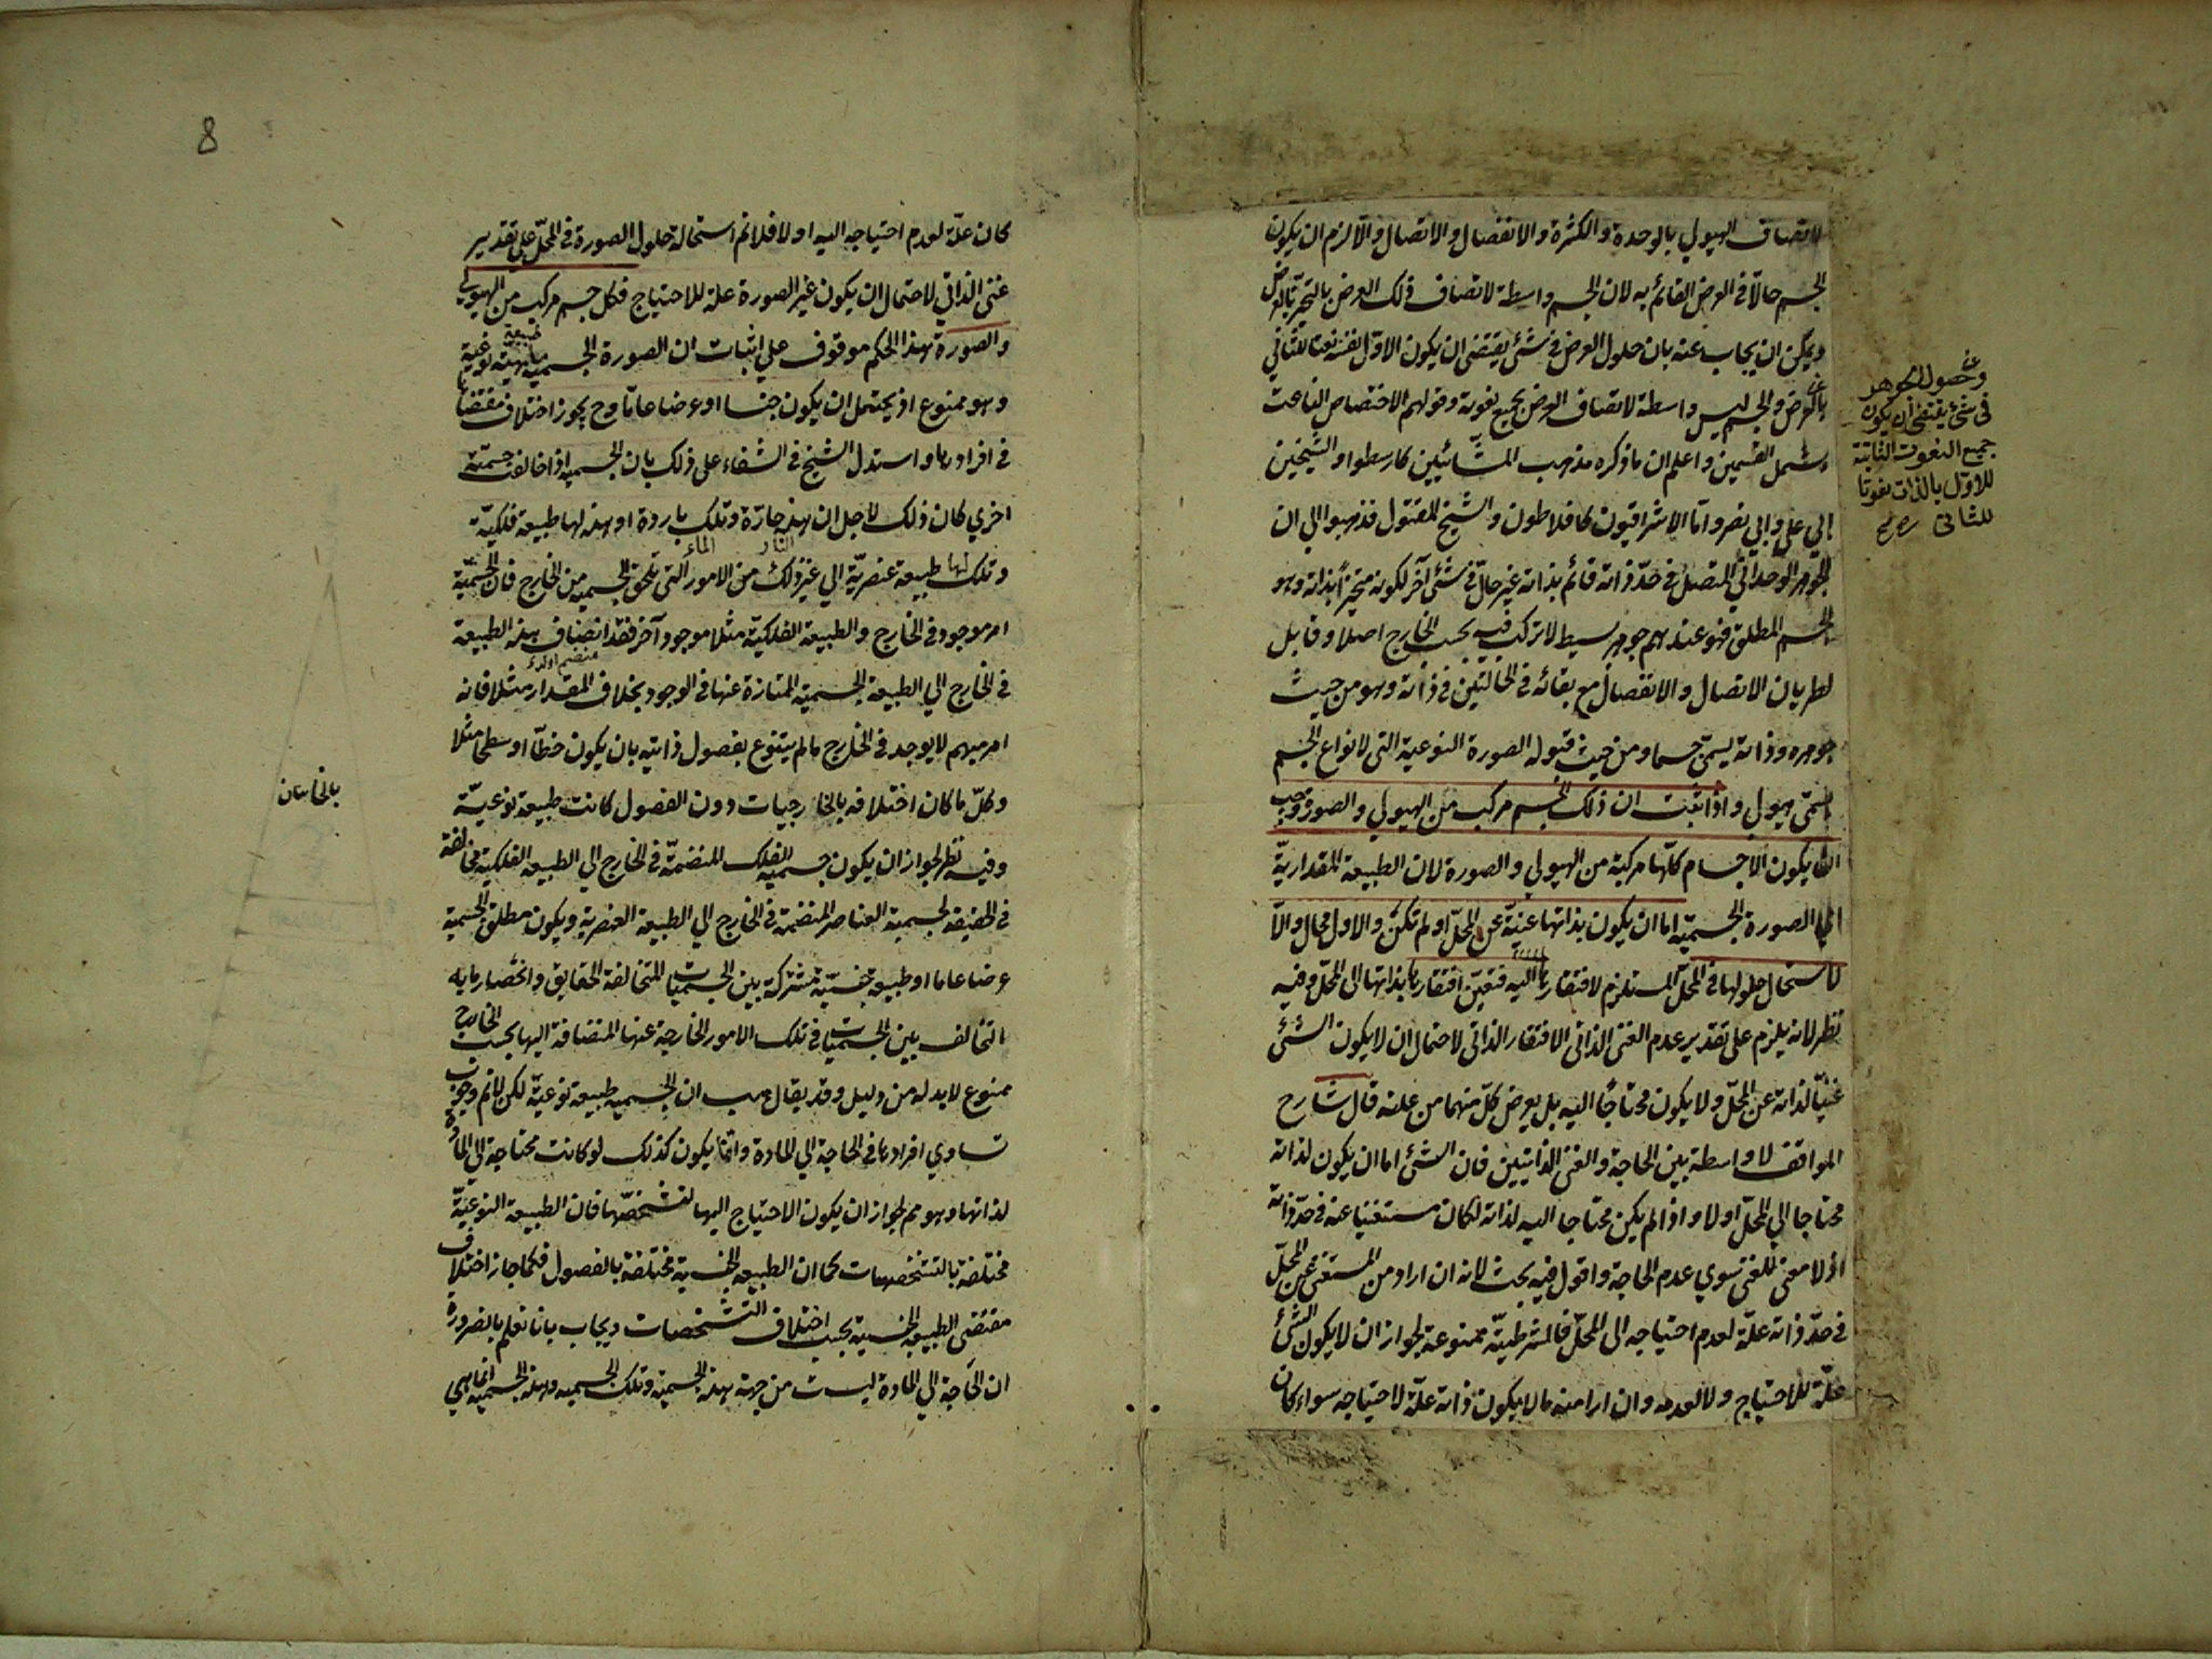 لاتصاف الهيولي بالوحدة والكثرة والانفصال والاتصال والا لزم ان يكون
الجسم حالّا في العرض القائم به لان الجسم واسطة لاتصاف ذلك العرض بالتحيز بالعرض
ويمكن ان يجاب عنه بان حلول العرض في شئ يقتضي ان يكون الاول نفسه نعتا للثاني
بالعرض والجسم ليس واسطة لاتصاف العرض بجميع نعوته وقولهم الاختصاص الناعت
يشمل القسمين واعلم ان ما ذكره مذهب المشّائيين كارسطو والشيخين
ابي علي وابي نصر وامّا الاشراقيون كافلاطون والشيخ المقتول فذهبوا الي ان
الجوهر الوحداني المتصل في حدّ ذاته قائم بذاته غير حالّ في شئ آخر لكونه متحيزا بذاته وهو
الجسم المطلق فهو عندهم جوهر بسيط لا تركب فيه بحسب الخارج اصلا وقابل
لطريان الاتصال والانفصال مع بقائه في الحالتين في ذاته وهو من حيث
جوهره وذاته يسمّي جسما ومن حيث قبوله الصورة النوعية التي لانواع الجسم
يسمّي هيولي واذا ثبت ان ذلك الجسم مركب من الهيولي والصورة وجب
ان يكون الاجسام كلّها مركبة من الهيولي والصورة لان الطبيعة المقداريّة
اي الصورة الجسميّة اما ان يكون بذاتها غنيّة عن المحلّ او لم تكن والاول محال والّا
لاستحال حلولها في المحلّ المستلزم لافتقارها اليه فتعيّن افتقارها بذاتها الى المحلّ وفيه
نظر لانه يلزم على تقدير عدم الغنى الذاتي الافتقار الذاتي لاحتمال ان لا يكون الشئ
غنيّا لذاته عن المحلّ ولا يكون محتاجًا اليه بل يعرض كلّ منهما من علته قال شارح
المواقف لا واسطة بين الحاجة والغنى الذاتيين فان الشئ اما ان يكون لذاته
محتاجا الي المحلّ اولا واذا لم يكن محتاجا اليه لذاته لكان مستغنيا عنه في حدّ ذاته
اذ لا معنى للغنى سوي عدم الحاجة واقول فيه بحث لانه ان اراد من المستغني عن المحلّ
في حدّ ذاته علّة لعدم احتياجه الى المحلّ فالشرطيّة ممنوعة لجواز ان لا يكون الشئ
علّة للاحتياج ولا لعدمه وان اراد منه ما لا يكون ذاته علّة لاحتياجه سواء كان
وحصول الجوهر
في شئ يقتضي ان يكون
جميع النعوت الثابتة
للاول بالذات نعوتا
للثاني
8
كان علّة لعدم احتياجه اليه اولا فلا نم استحالة حلول الصورة في المحلّ على تقدير
غنى الذاتي لاحتمال ان يكون غير الصورة علة للاحتياج فكل جسم مركب من الهيولي
والصورة هذا الحكم موقوف علي اثبات ان الصورة الجسمية ماهية نوعية
طبيعة
وهو ممنوع اذ يحتمل ان يكون جنسا او عرضا عاما وح يجوز اختلاف مقتضاها
في افرادها واستدل الشيخ في الشفاء على ذلك بان الجسمية اذا خالفت جسميّة
اخري كان ذلك لاجل ان هذه حارّة وتلك باردة او هذه لها طبيعة فلكيّة
النار الماء
وتلك لها طبيعة عنصريّة الي غير ذلك من الامور التي تلحق الجسمية من الخارج فان الجسميّة
امر موجود في الخارج والطبيعة الفلكيّة مثلا موجود آخر فقد انضاف بهذه الطبيعة
في الخارج الي الطبيعة الجسمية الممتازة عنها في الوجود بخلاف المقدار مثلا فانه
امر مبهم لا يوجد في الخارج ما لم يتنوع بفصول ذاتيه بان يكون خطّا او سطحا مثلا
وكلّ ما كان اختلافه بالخارجيات دون الفصول كانت طبيعة نوعيّة
وفيه نظر لجواز ان يكون جسمية الفلك المنضمّة في الخارج الي الطبيعة الفلكية مخالفة
في الحقيقة لجسمية العناصر المنضمة في الخارج الي الطبيعة العنصرية ويكون مطلق الجسمية
عرضا عاما او طبيعة جنسيّة مشتركة بين الجسميات المتخالفة الحقايق وانحصار ما به
التخالف بين الجسميات في تلك الامور الخارجة عنها المنضافة اليها بحسب الخارج
ممنوع لا بد له من دليل وقد يقال هب ان الجسمية طبيعة نوعيّة لكن لا نم وجوب
تساوي افرادها في الحاجة الي المادة وانّما يكون كذلك لو كانت محتاجة الي المادة
لذاتها وهو مم لجواز ان يكون الاحتياج اليها لتشخصّها فان الطبيعة النوعيّة
مختلفة بالتشخصات كما ان الطبيعة الجنسية مختلفة بالفصول فكما جاز اختلاف
مقتضى الطبيعة الجنسية بحسب اختلاف التشخصات ويجاب بانا نعلم بالضرورة
ان الحاجة الي المادة ليست من جهة هذه الجسمية وتلك الجسمية وهذه الجسمية انما هي